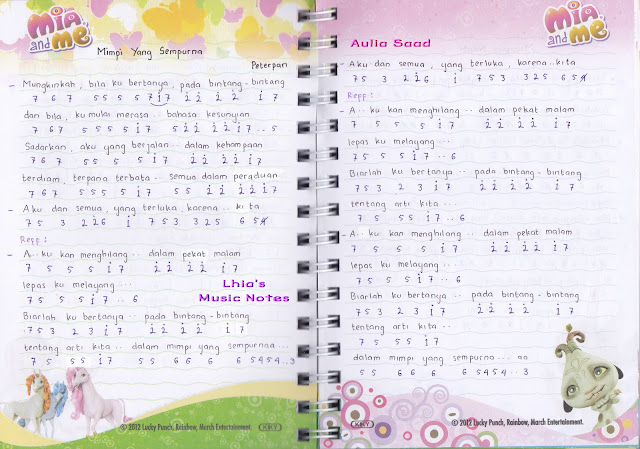 MIA and me
Mimpi Yang Sempurna
Peterpan
- Mungkinkah, bila ku bertanya, pada bintang-bintang
7 6 7 5 5 5 5 7 i 7 2̇ 2̇ 2̇ 2̇ i 7
dan bila, ku mulai merasa.. bahasa kesunyian
7 6 7 5 5 5 5 i 7 5 2̇ 2̇ 2̇ 2̇ i 7 .. 5
Sadarkan, aku yang berjalan.. dalam kehampaan
7 6 7 5 5 5 5 i 7 2̇ 2̇ 2̇ 2̇ i 7
terdiam, terpana terbata.. semua dalam peraduan
7 6 7 5 5 5 5 i 7 5 5 2̇ 2̇ 2̇ i 7
- Aku dan semua, yang terluka, karena.. kita
7 5 3 2 2 6 i 7 5 3 3 2 5 6 5
Reff :
- A.. ku kan menghilang.. dalam pekat malam
7 5 5 5 i 7 2̇ 2̇ 2̇ 2̇ i 7
lepas ku melayang...
7 5 5 5 i 7 .. 6
Biarlah ku bertanya.. pada bintang-bintang
7 5 3 2 3 i 7 2̇ 2̇ 2̇ 2̇ i 7
tentang arti kita.. dalam mimpi yang sempurnaa..
7 5 5 5 i 7 5 5 6 6 6 6 5 4 5 4 .. 3
Lhia's
Music Notes
© 2012 Lucky Punch, Rainbow, March Entertainment.
KIKY
MIA and me
Aulia Saad
- Aku dan semua, yang terluka, karena.. kita
7 5 3 2 2 6 i 7 5 3 3 2 5 6 5
Reff :
- A.. ku kan menghilang.. dalam pekat malam
7 5 5 5 5 i 7 2̇ 2̇ 2̇ 2̇ i 7
lepas ku melayang...
7 5 5 5 i 7 .. 6
Biarlah ku bertanya.. pada bintang-bintang
7 5 3 2 3 i 7 2̇ 2̇ 2̇ 2̇ i 7
tentang arti kita...
7 5 5 5 i 7 .. 6
- A.. ku kan menghilang.. dalam pekat malam
7 5 5 5 5 i 7 2̇ 2̇ 2̇ 2̇ i 7
lepas ku melayang....
7 5 5 5 i 7 .. 6
Biarlah ku bertanya.. pada bintang-bintang
7 5 3 2 3 i 7 2̇ 2̇ 2̇ 2̇ i 7
tentang arti kita..
7 5 5 5 i 7
dalam mimpi yang sempurna... aa
5 5 6 6 6 6 5 4 5 4 .. 3
© 2012 Lucky Punch, Rainbow, March Entertainment.
KIKY